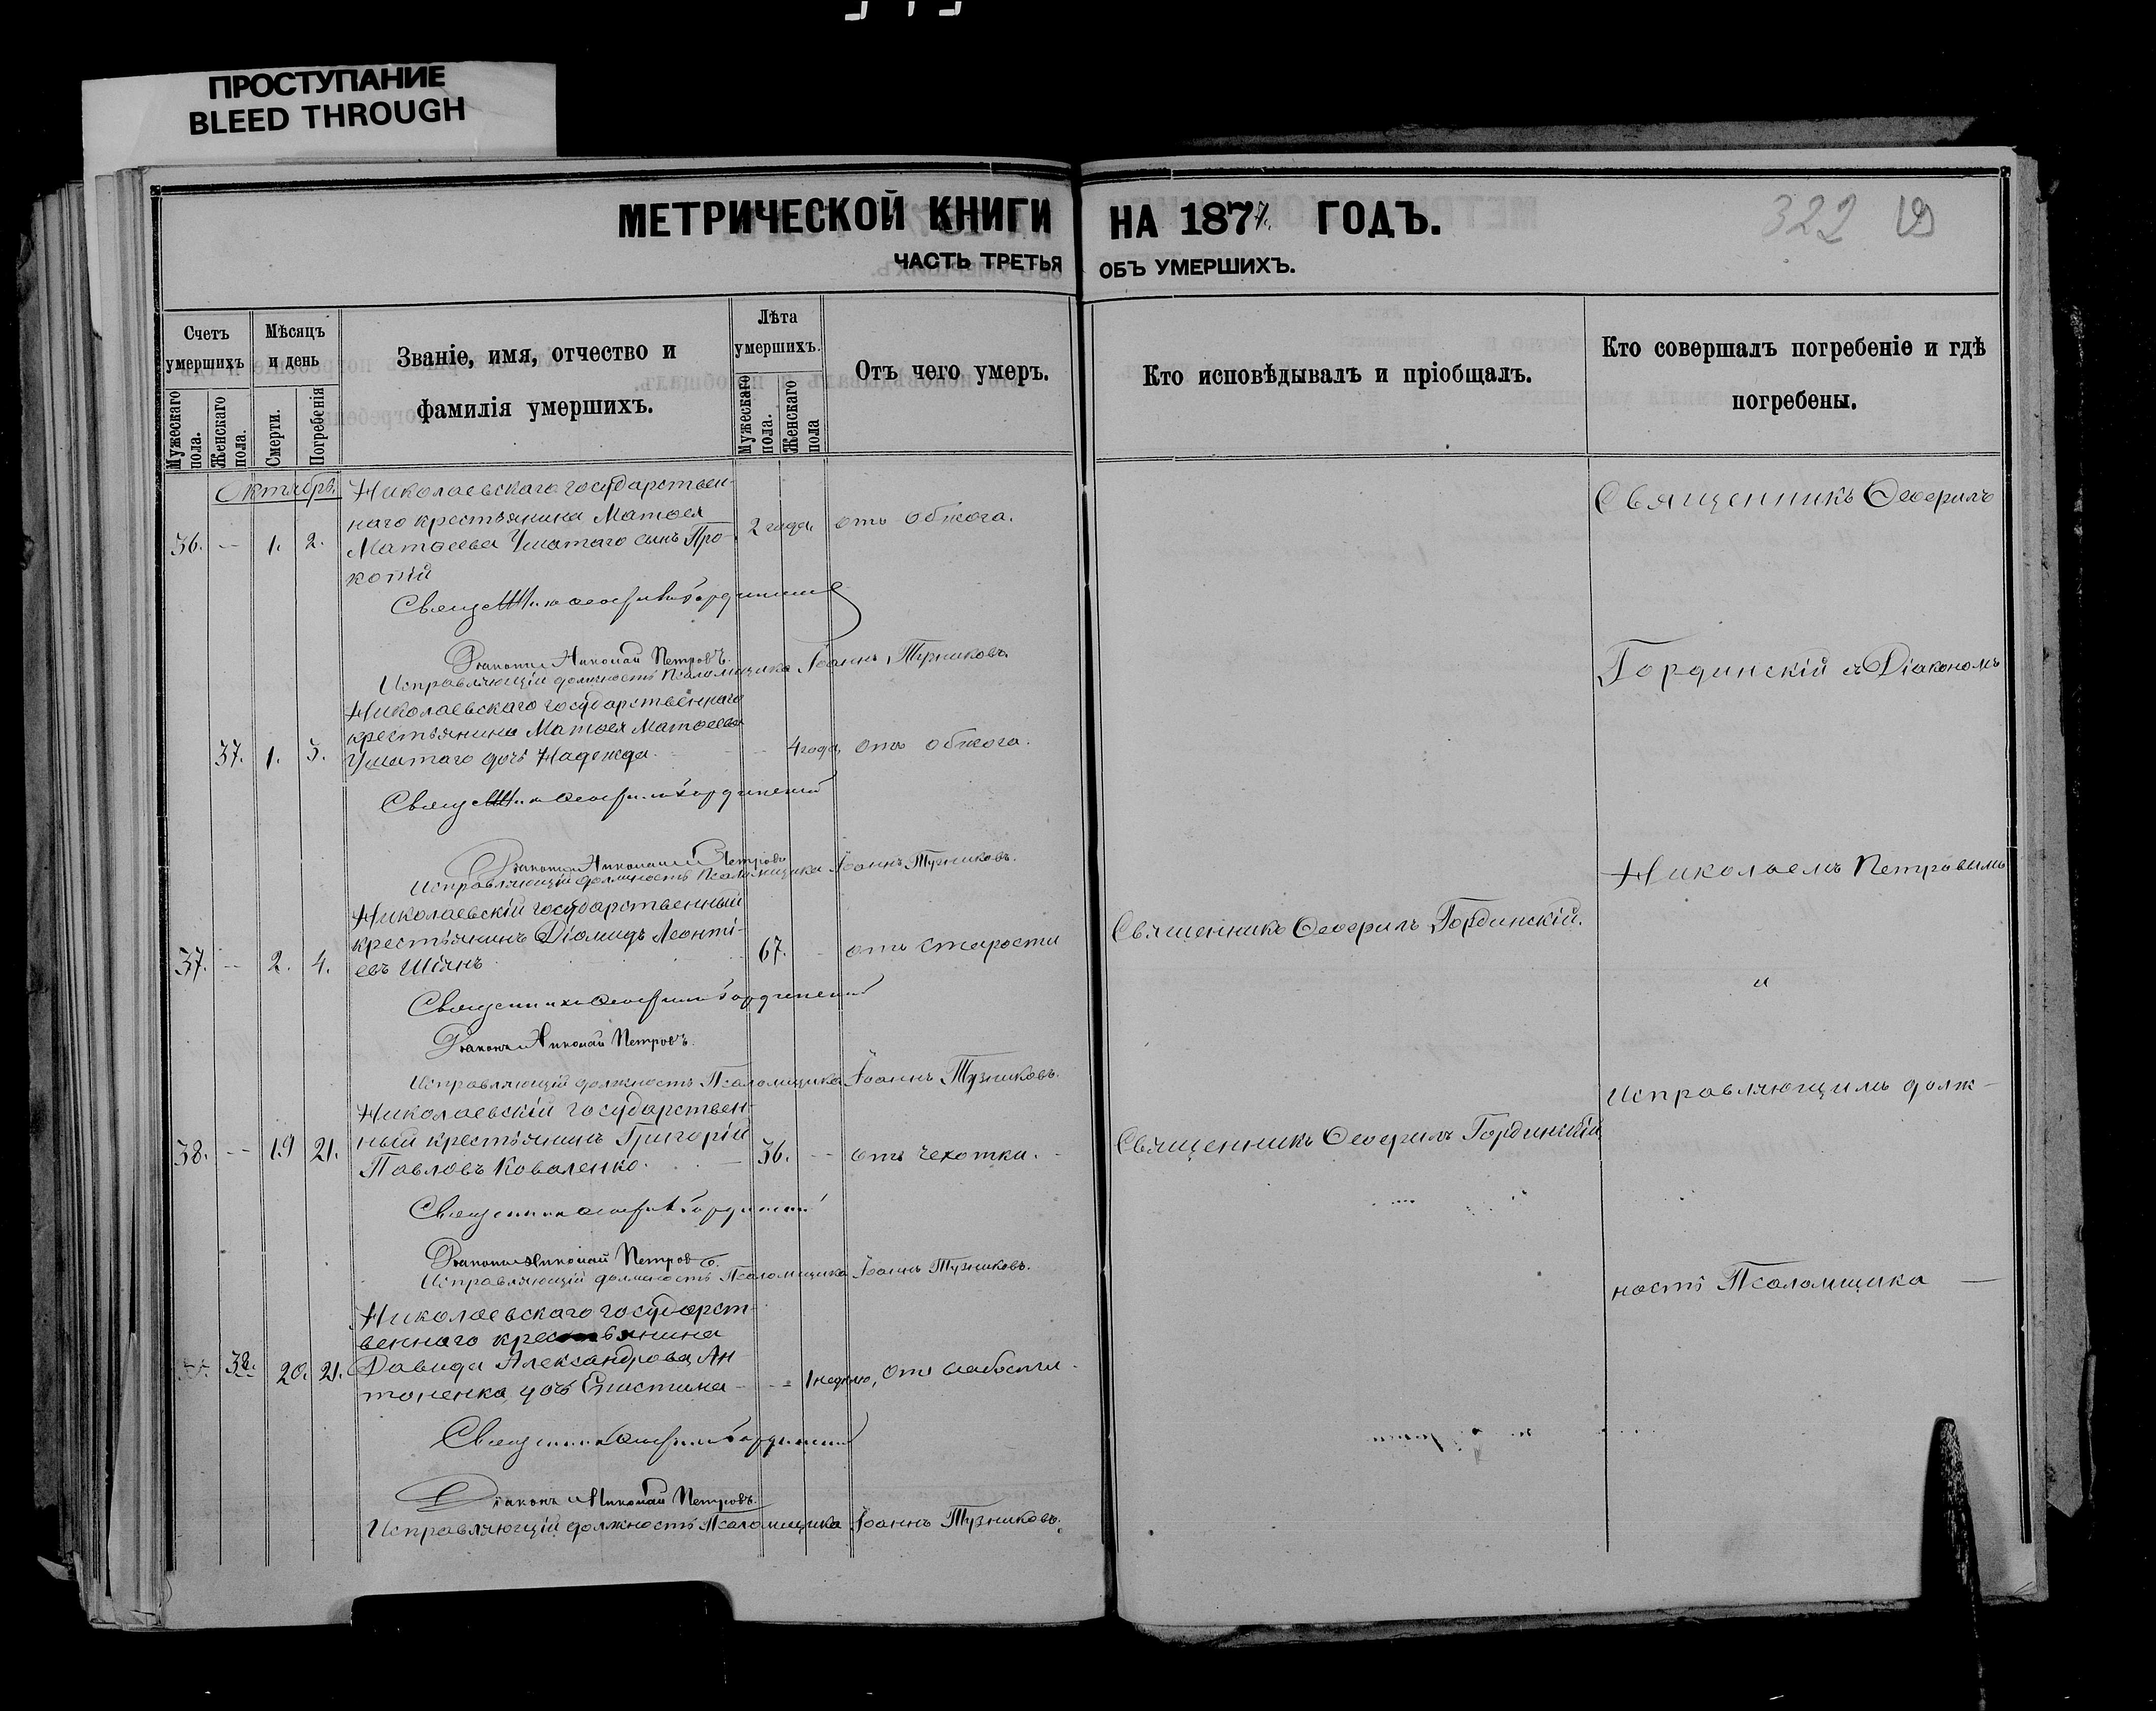 ПРОСТУПАНИЕ
BLEED THROUGH
МЕТРИЧЕСКОЙ КНИГИ
ЧАСТЬ ТРЕТЬЯ
Счетъ умершихъ
Мѣсяцъ и день
Званіе, имя, отчество и фамилія умершихъ.
Лѣта умершихъ.
Отъ чего умеръ.
Мужескаго пола.
Женскаго пола.
Смерти.
Погребенія
Мужескаго пола.
Женскаго пола
Октябрь.
Николаевскаго государствен-
наго крестьянина Матѳея
36. — 1. 2. Матѳеева Ушатаго сынъ Про- 2 года. отъ обжога.
копій
Священникъ Ѳеофилъ Гординскій
Діаконъ Николай Петровъ.
Исправляющій должность Псаломщика Іоаннъ Тузниковъ.
Николаевскаго государственнаго
крестьянина Матѳея Матѳеева
37. 1. 3. Ушатаго дочь Надежда. 4 года, отъ обжога.
Священникъ Ѳеофилъ Гординскій
Діаконъ Николай Петровъ
Исправляющій должность Псаломщика Іоаннъ Тузниковъ.
Николаевскій государственный
крестьянинъ Діомидъ Леонті-
37. — 2. 4. евъ Шіянъ 67. отъ старости
Священникъ Ѳеофилъ Гординскій
Діаконъ Николай Петровъ.
Исправляющій должность Псаломщика Іоаннъ Тузниковъ.
Николаевскій государствен-
ный крестьянинъ Григорій
38. — 19 21. Павловъ Коваленко. 36. — отъ чехотки.
Священникъ Ѳеофилъ Гординскій
Діаконъ Николай Петровъ.
Исправляющій должность Псаломщика Іоаннъ Тузниковъ.
Николаевскаго государст-
веннаго крестьянина
38. 20. 21. Давида Александрова Ан-
тоненка, дочь Епистима — 1 недѣлю, отъ слабости.
Священникъ Ѳеофилъ Гординскій
Діаконъ Николай Петровъ.
Исправляющій должность Псаломщика Іоаннъ Тузниковъ.
НА 1877. ГОДЪ.
322
ОБЪ УМЕРШИХЪ.
Кто исповѣдывалъ и пріобщалъ.
Кто совершалъ погребеніе и гдѣ погребены.
Священникъ Ѳеофилъ
Гординскій съ Діакономъ
Николаемъ Петровымъ
Священникъ Ѳеофилъ Гординскій.
и
Исправляющимъ долж-
Священникъ Ѳеофилъ Гординскій
ность Псаломщика —